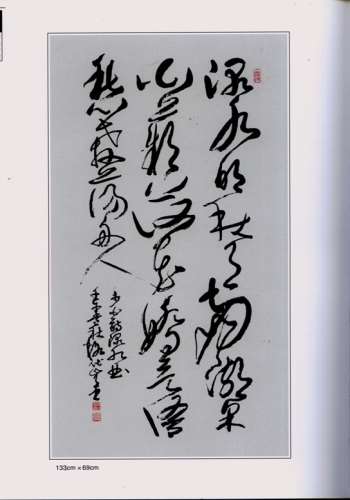 渌水明秋月南湖采
白蘋荷花嬌欲語
愁殺蕩舟人
李白詩渌水曲
133cm × 69cm